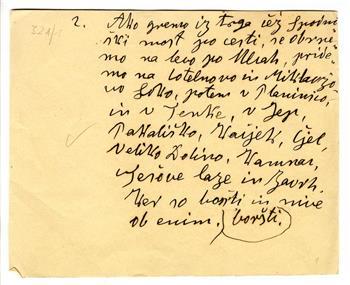 324/1
2. Ako gremo iz trga čez spodnji
ški most po cesti, se obrne
mo na levo po Mlak, pride
mo na Lotelnovo in Miklavžo
vo Loko, potem v Planinšco,
in v Senke, v Jep,
Pakališko, Kaijek, Čjel,
Veliko Dolino, Kamnar,
Jeršove laze in Zavrh.
Ker so boršti in nive
ob enim. boršti.